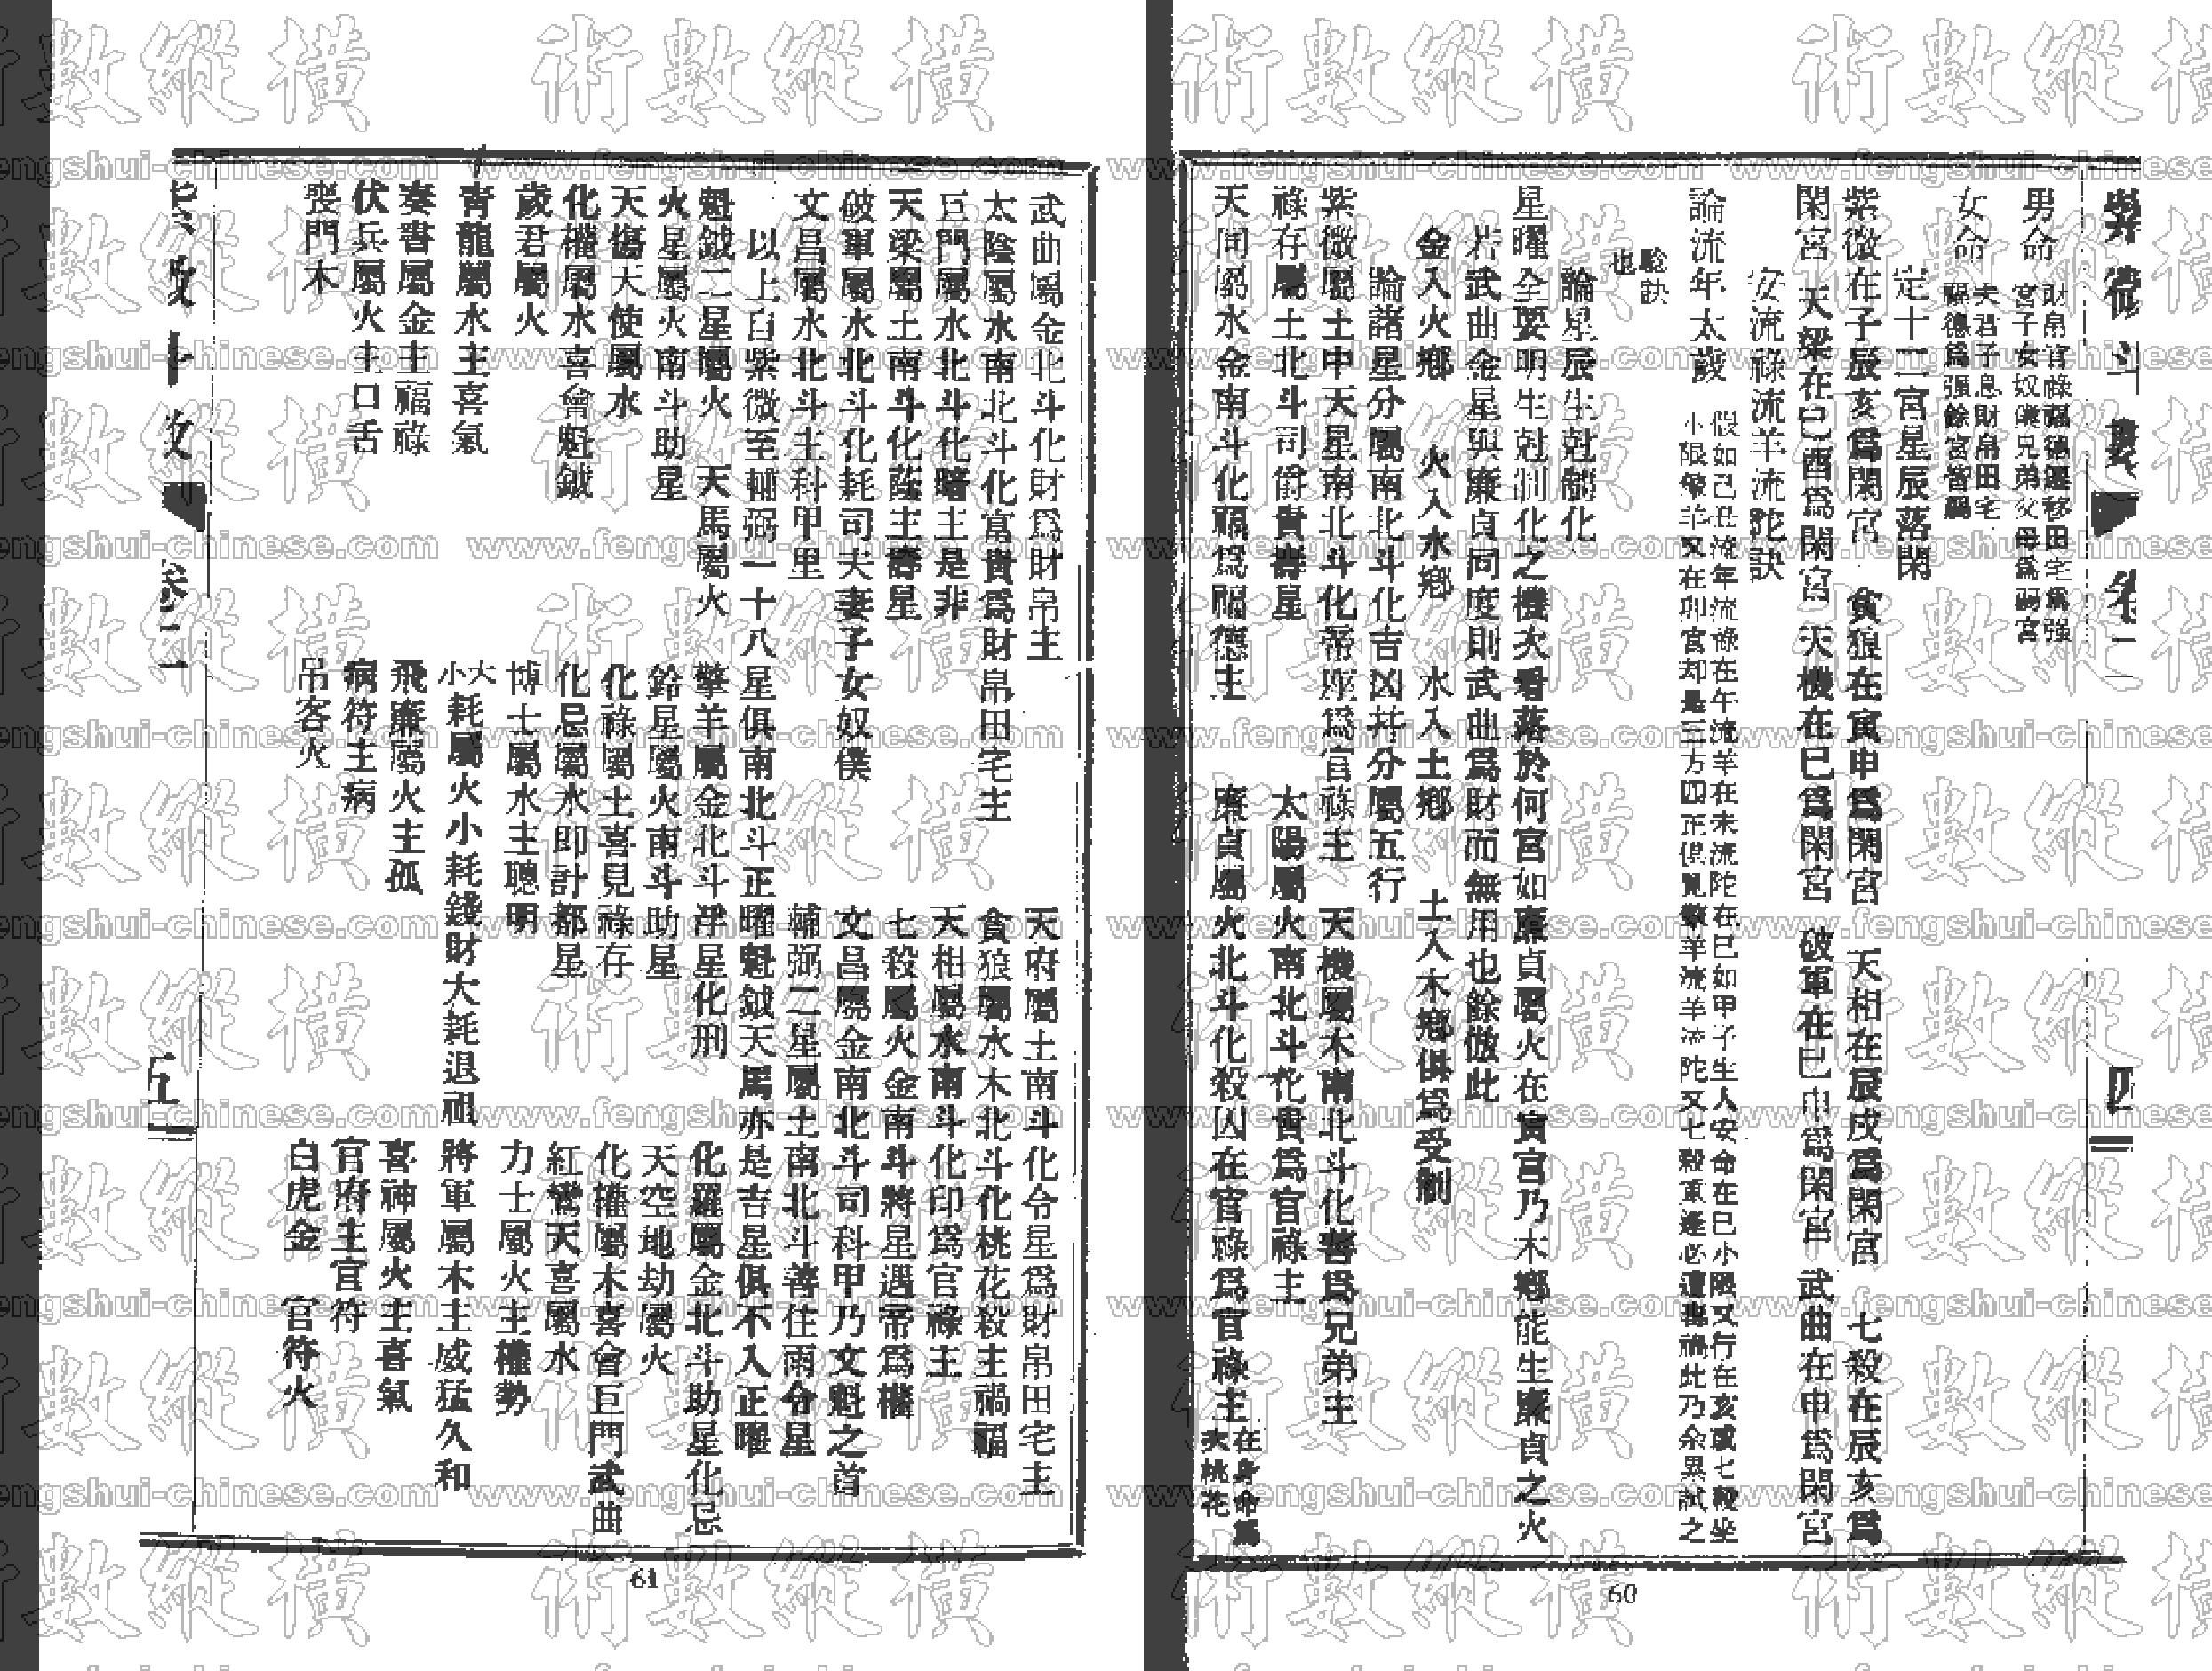 紫微斗數 卷二 四
男命 財帛官祿福德遷移田宅爲强
宮子女奴僕兄弟父母爲弱宮
女命 夫君子息財帛田宅
福德爲强餘宮皆弱
定十二宮星辰落閑
紫微在子辰亥爲閑宮 貪狼在寅申爲閑宮 天相在辰戌爲閑宮 七殺在辰亥爲
閑宮 天梁在巳酉爲閑宮 天機在巳爲閑宮 破軍在巳申爲閑宮 武曲在申爲閑宮
安流祿流羊流陀訣
論流年太歲 假如己丑流年流祿在午流羊在未流陀在巳如甲子生人安命在巳小限又行在亥或七殺坐
小限擎羊又在卯宮却是三方四正俱見擎羊流羊流陀又七殺重逢必遭凶禍此乃余累試之
驗訣
也
論星辰生尅制化
星曜全要明生尅制化之機次看落於何宮如廉貞屬火在寅宮乃木鄉能生廉貞之火
若武曲金星與廉貞同度則武曲爲財而無用也餘倣此
金入火鄉 火入水鄉 水入土鄉 土入木鄉俱爲受制
論諸星分屬南北斗化吉凶并分屬五行
紫微屬土中天星南北斗化帝座爲官祿主 天機屬木南北斗化善爲兄弟主
祿存屬土北斗司爵貴壽星 太陽屬火南北斗化貴爲官祿主
天同屬水金南斗化福爲福德主 廉貞屬火北斗化殺囚在官祿爲官祿主 在身命爲
次桃花
60
武曲屬金北斗化財爲財帛主 天府屬土南斗化令星爲財帛田宅主
太陰屬水南北斗化富貴爲財帛田宅主 貪狼屬水木北斗化桃花殺主禍福
巨門屬水北斗化暗主是非 天相屬水南斗化印爲官祿主
天梁屬土南斗化蔭主壽星 七殺屬火金南斗將星遇帝爲權
破軍屬水北斗化耗司夫妻子女奴僕 文昌屬金南北斗司科甲乃文魁之首
文昌屬水北斗主科甲里 輔弼二星屬土南北斗善佳雨令星
以上自紫微至輔弼一十八星俱南北斗正曜魁鉞天馬亦是吉星俱不入正曜
魁鉞二星屬火 天馬屬火 擎羊屬金北斗浮星化刑 化羅屬金北斗助星化忌
火星屬火南斗助星 鈴星屬火南斗助星 天空地劫屬火
天傷天使屬水 化祿屬土喜見祿存 化權屬木喜會巨門武曲
化權屬水喜會魁鉞 化忌屬水即計都星 紅鸞天喜屬水
歲君屬火 博士屬水主聰明 力士屬火主權勢
青龍屬水主喜氣 大小耗屬火小耗錢財大耗退祖 將軍屬木主威猛久和
奏書屬金主福祿 飛廉屬火主孤 喜神屬火主喜氣
伏兵屬火主口舌 病符主病 官府主官符
喪門木 吊客火 白虎金 官符火
紫微斗數 卷二 五
61